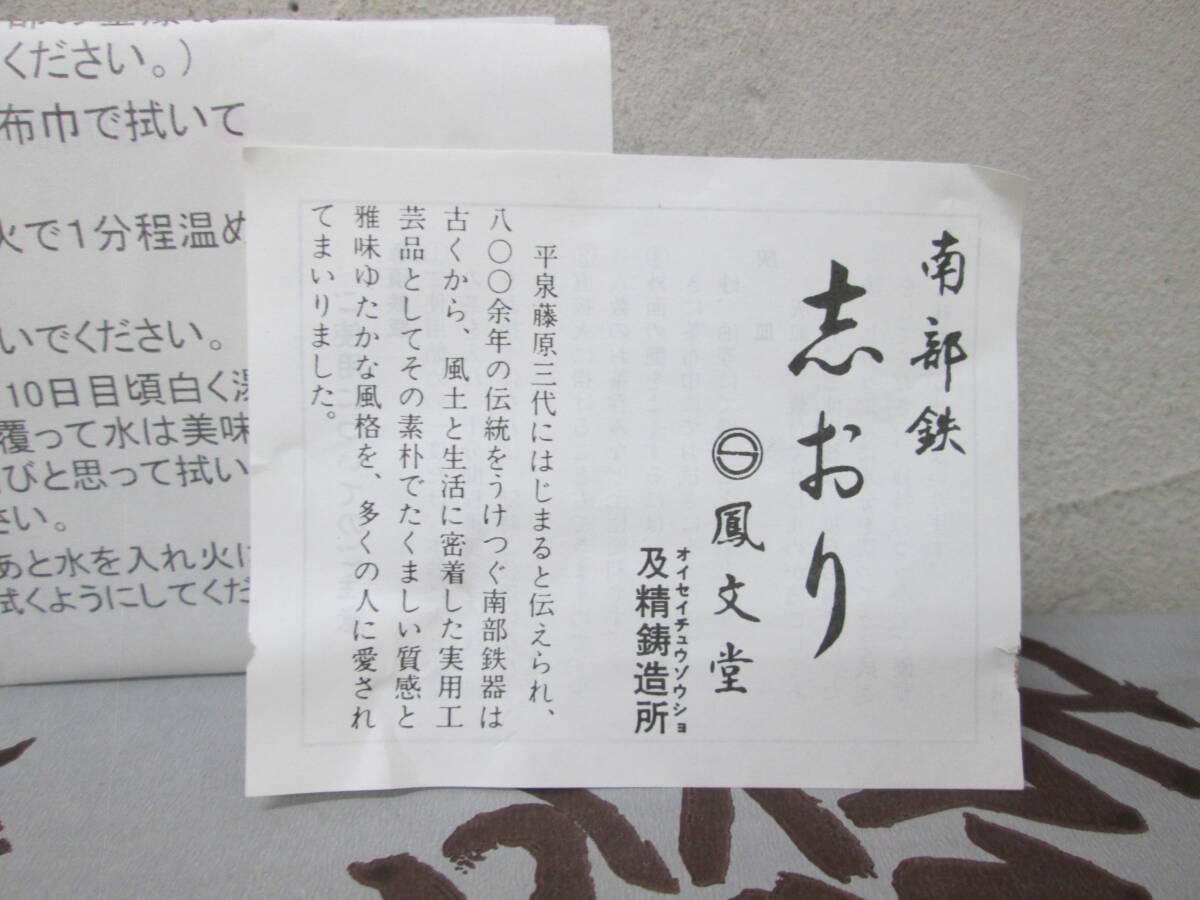 南部鉄
志おり
鳳文堂
オイセイチュウゾウショ
及精鋳造所
平泉藤原三代にはじまると伝えられ、
八〇〇余年の伝統をうけつぐ南部鉄器は
古くから、風土と生活に密着した実用工
芸品としてその素朴でたくましい質感と
雅味ゆたかな風格を、多くの人に愛され
てまいりました。
ください。）
布巾で拭いて
火で1分程温め
いでください。
10日目頃白く湯
覆って水は美味
びと思って拭い
さい。
あと水を入れ火に
拭くようにしてくだ